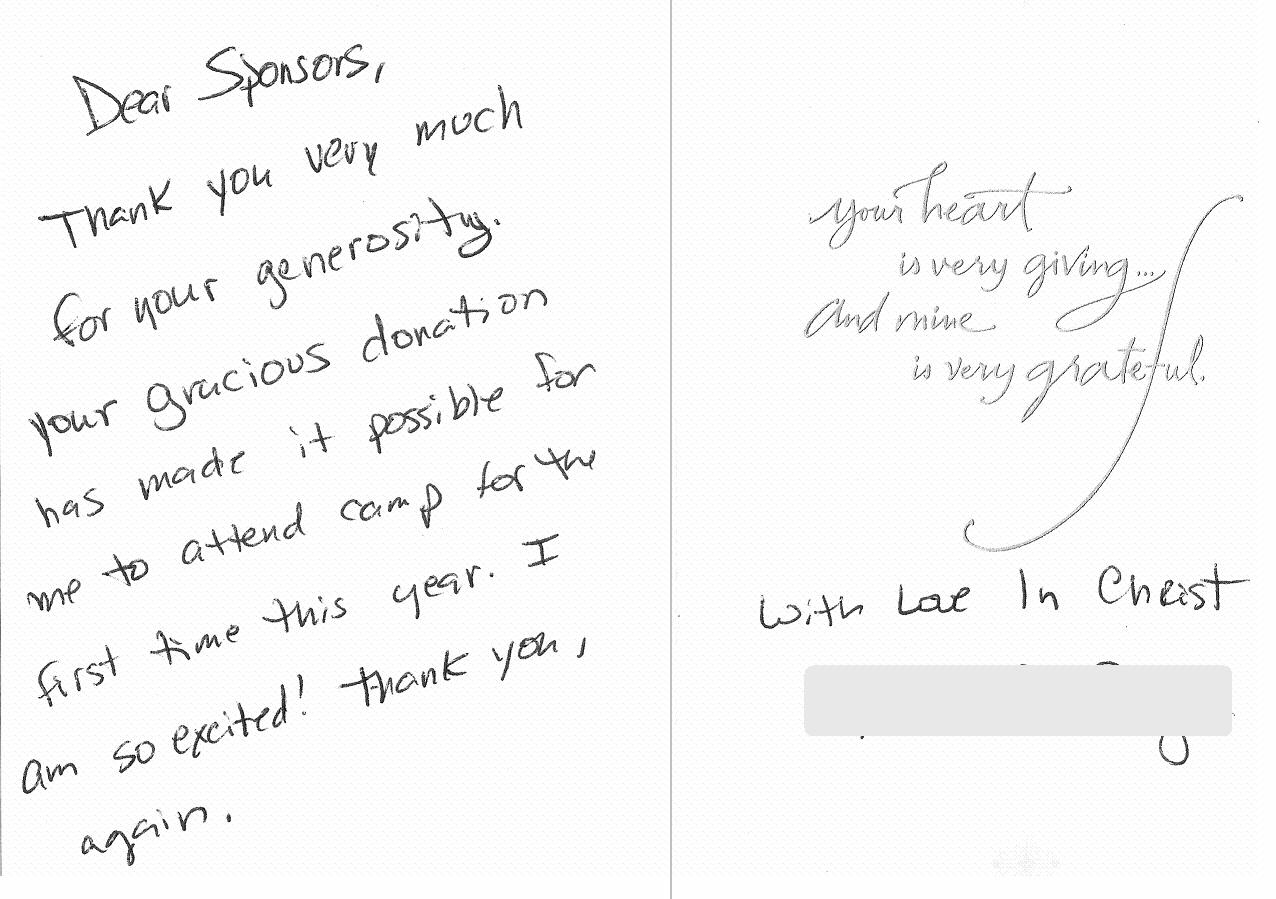 Dear Sponsors,
Thank you very much
for your generosity.
your gracious donation
has made it possible for
me to attend camp for the
first time this year. I
am so excited! Thank you,
again.
your heart
is very giving...
And mine
is very grateful.
With Love In Christ